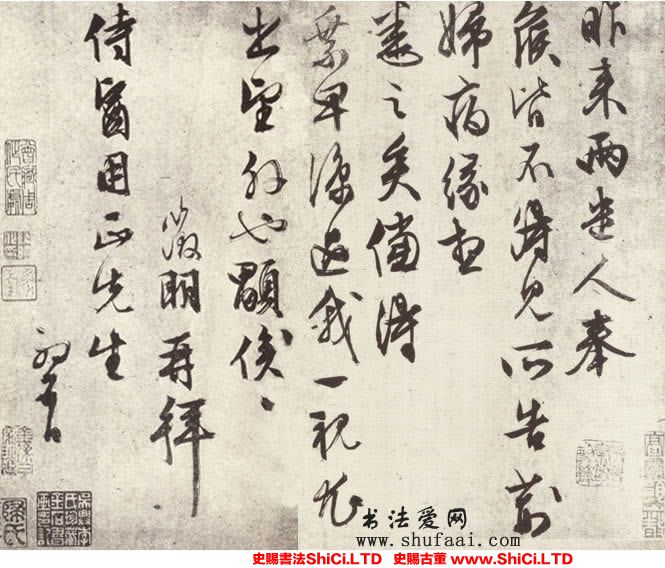 昨來兩遣人奉
候皆不得見所告荊
婦病緣想
悉之矣倘得
乘早涼過我一視尤
出望外也顒俟、
徵明再拜
侍醫用正先生
书法爱网
www.shufaai.com
史賜書法ShiCi.LTD 史賜古董 www.ShiCi.LTD